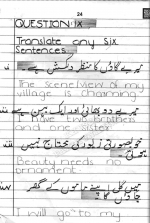 24
QUESTION: IX
Translate any Six
Sentences.
میرے گاؤں کا منظر دلکش ہے۔
The scene/view of my
village is charming.
میرے دو بھائی اور ایک بہن ہے۔
I have two brothers
and one sister.
خوبصورتی زیور کی محتاج نہیں
Beauty needs no
ornament.
میں کل اپنے
کے گھر
جاؤں گا
I will go to my